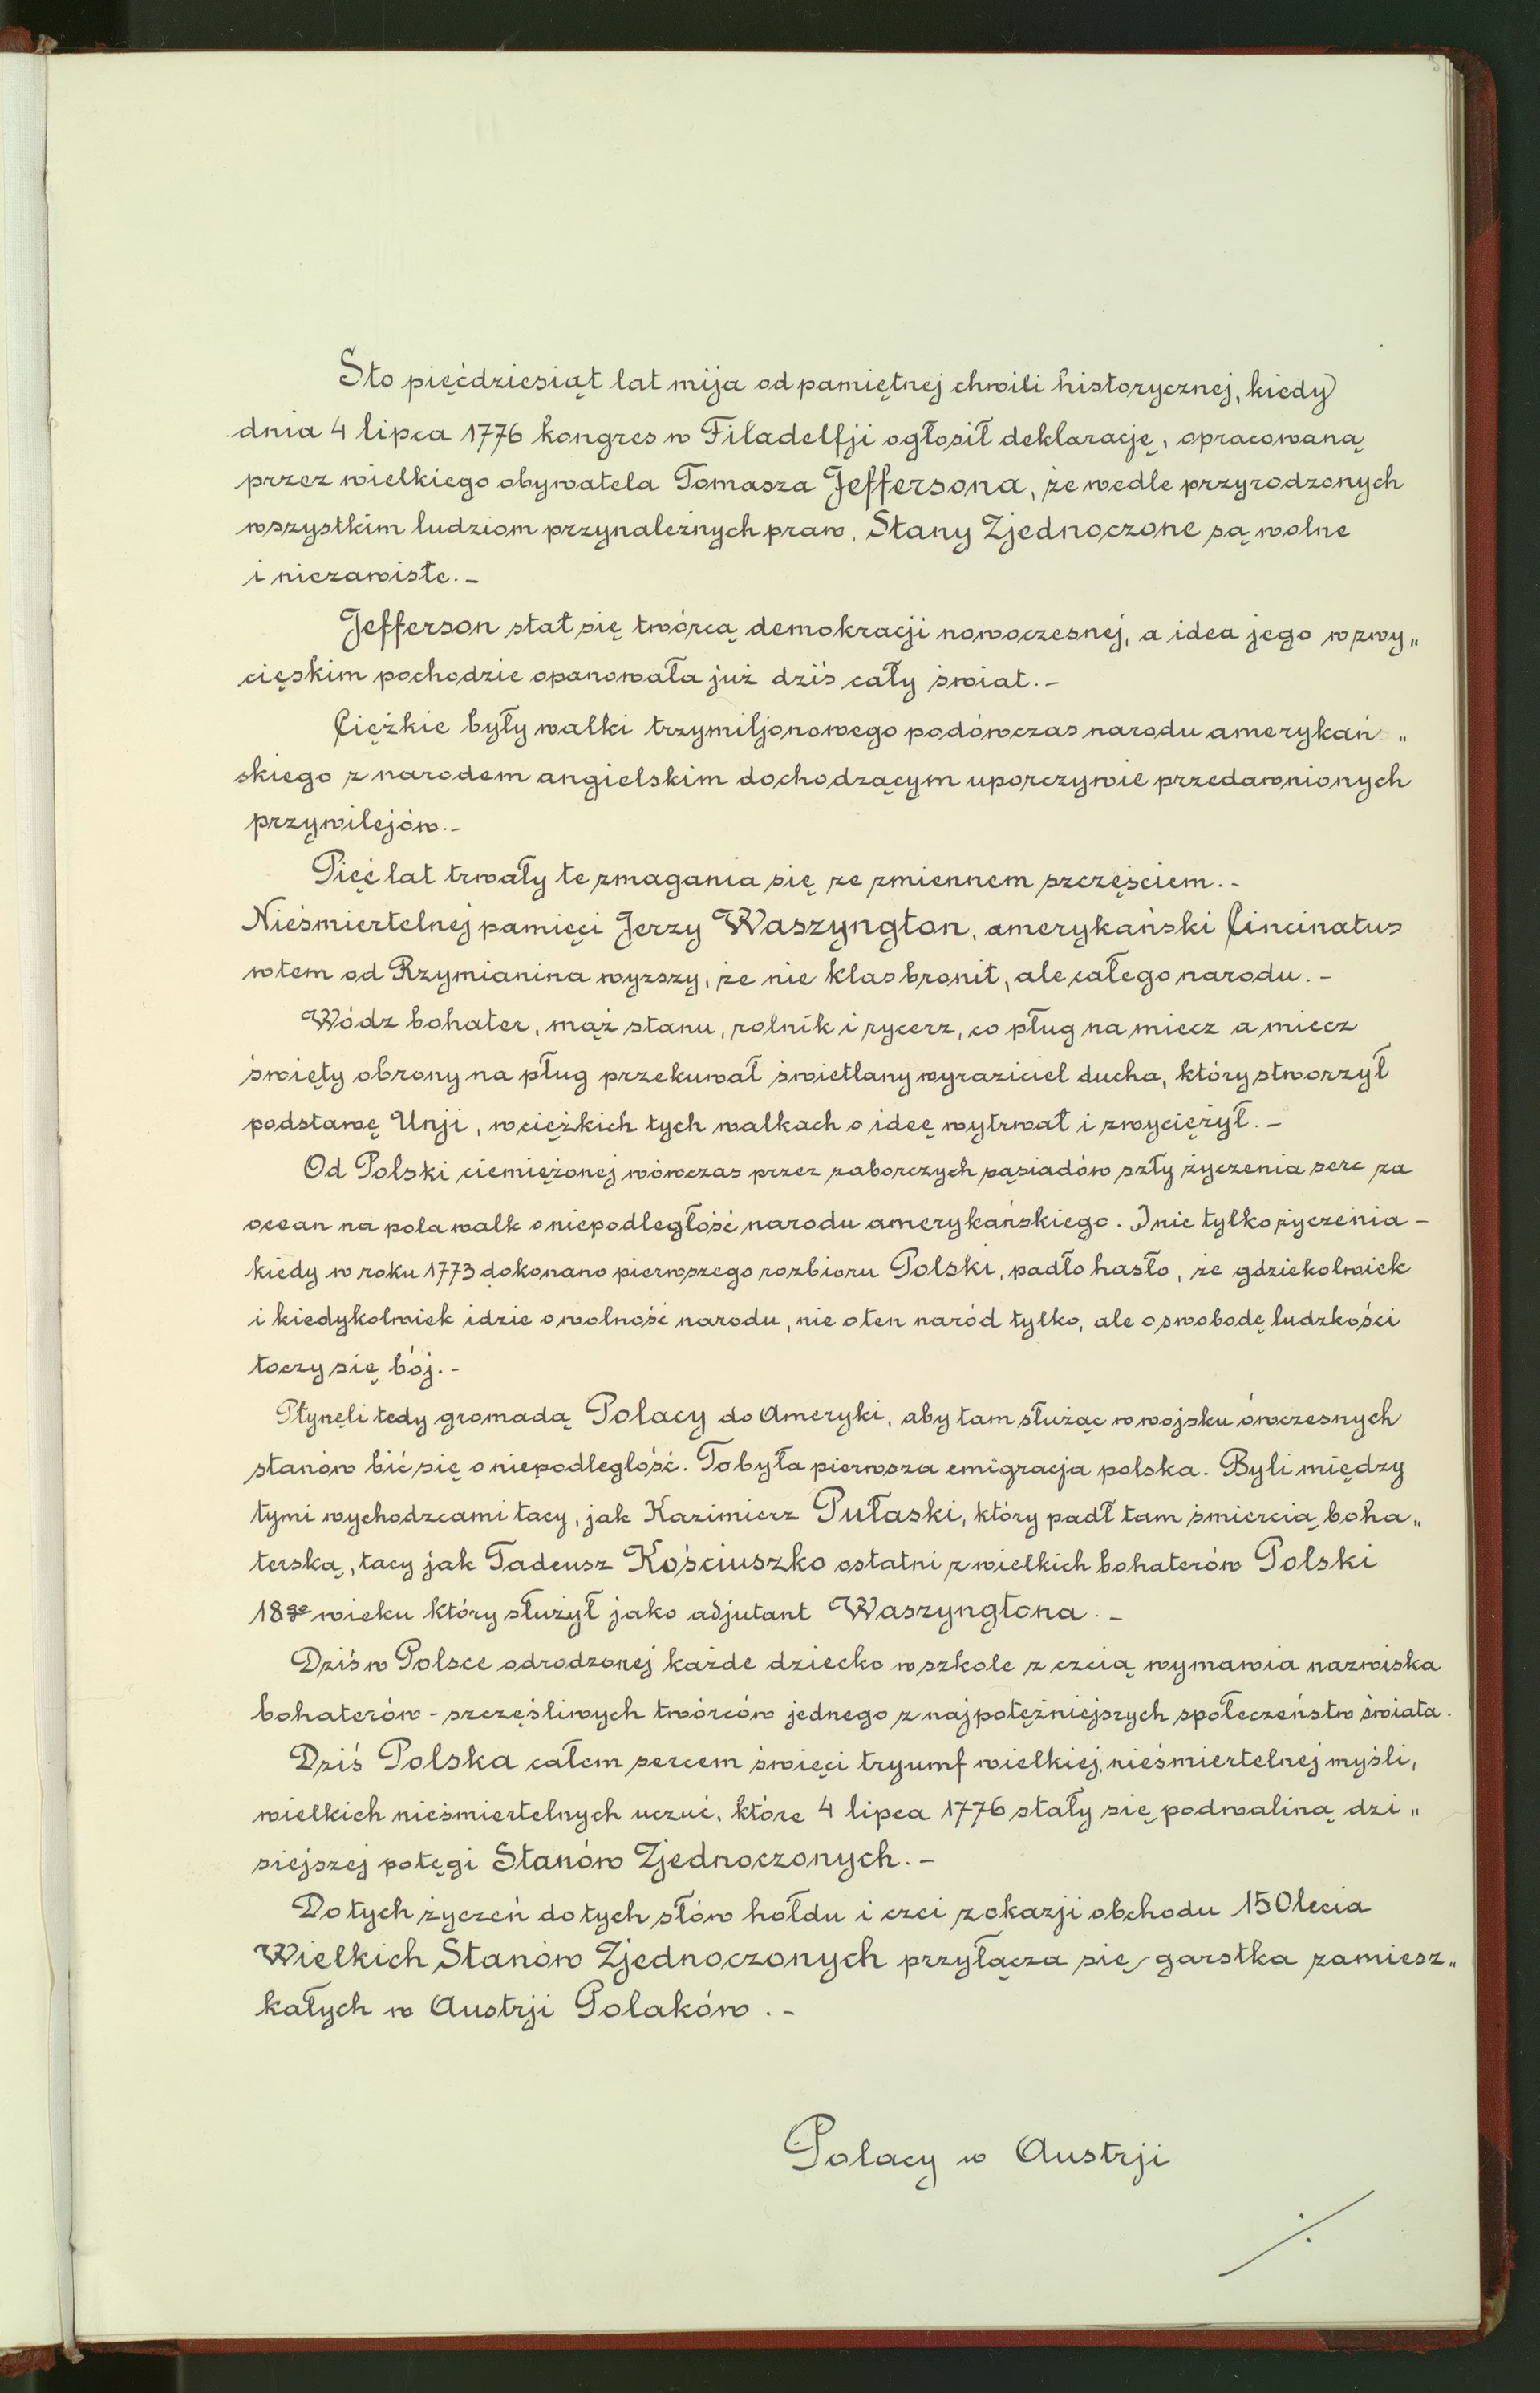 Sto pięćdziesiąt lat mija od pamiętnej chwili historycznej, kiedy
dnia 4 lipca 1776 kongres w Filadelfji ogłosił deklarację, opracowaną
przez wielkiego obywatela Tomasza Jeffersona, że wedle przyrodzonych
wszystkim ludziom przynależnych praw, Stany Zjednoczone są wolne
i niezawisłe.-
Jefferson stał się twórcą demokracji nowoczesnej, a idea jego w zwy„
cięskim pochodzie opanowała już dziś cały świat.-
Ciężkie były walki trzymiljonowego podówczas narodu amerykań„
skiego z narodem angielskim dochodzącym uporczywie przedawnionych
przywilejów.-
Pięć lat trwały te zmagania się ze zmiennem szczęściem.-
Nieśmiertelnej pamięci Jerzy Waszyngton, amerykański Cincinatus
w tem od Rzymianina wyższy, że nie klas bronił, ale całego narodu.-
Wódz bohater, mąż stanu, rolnik i rycerz, co pług na miecz a miecz
święty obrony na pług przekuwał świetlany wyraziciel ducha, który stworzył
podstawę Unji, w ciężkich tych walkach o ideę wytrwał i zwyciężył.-
Od Polski ciemiężonej wówczas przez zaborczych sąsiadów szły życzenia serc za
ocean na pola walk o niepodległość narodu amerykańskiego. I nie tylko życzenia -
kiedy w roku 1773 dokonano pierwszego rozbioru Polski, padło hasło, że gdziekolwiek
i kiedykolwiek idzie o wolność narodu, nie o ten naród tylko, ale o swobodę ludzkości
toczy się bój.-
Płynęli tedy gromadą Polacy do Ameryki, aby tam służąc w wojsku ówczesnych
stanów bić się o niepodległość. To była pierwsza emigracja polska. Byli między
tymi wychodzcami tacy, jak Kazimierz Pułaski, który padł tam śmiercią boha„
terską, tacy jak Tadeusz Kościuszko ostatni z wielkich bohaterów Polski
18go wieku który służył jako adjutant Waszyngtona.-
Dziś w Polsce odrodzonej każde dziecko w szkole z czcią wymawia nazwiska
bohaterów - szczęśliwych twórców jednego z najpotężniejszych społeczeństw świata.
Dziś Polska całem sercem święci tryumf wielkiej, nieśmiertelnej myśli,
wielkich nieśmiertelnych uczuć, które 4 lipca 1776 stały się podwaliną dzi„
siejszej potęgi Stanów Zjednoczonych.-
Do tych życzeń do tych słów hołdu i czci z okazji obchodu 150lecia
Wielkich Stanów Zjednoczonych przyłącza się garstka zamiesz„
kałych w Austrji Polaków.-
Polacy w Austrji